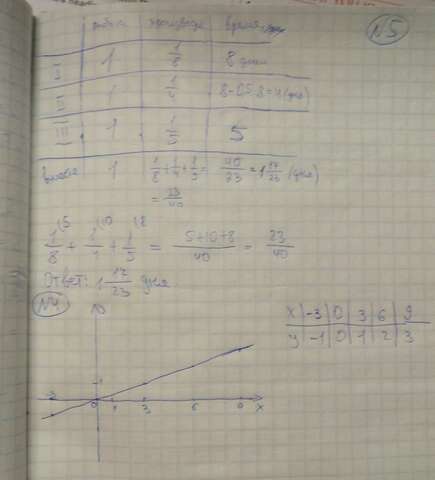 N5
работа производ время
I 1 1/8 8 дней
II 1 1/4 8-0,5·8=4(дня)
III 1 1/5 5
вместе 1 1/8+1/4+1/5= 40/23=1 17/23 (дня)
=23/40
1/8 (5 + 1/4 (10 + 1/5 (8 = 5+10+8/40 = 23/40
Ответ: 1 17/23 дня
N4
x -3 0 3 6 9
y -1 0 1 2 3
1
-3 0 1 3 6 9 x